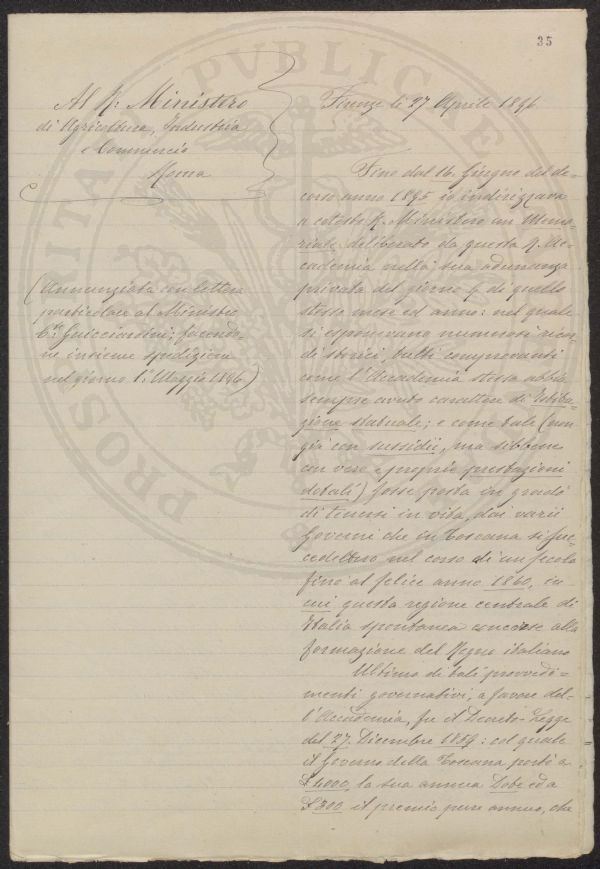 35
Al R. Ministero
di Agricoltura, Industria
e Commercio
Roma
(Annunziata con lettera
particolare al Ministro
Guicciardini; facendo-
ne insieme spedizione
nel giorno 1° Maggio 1896)
Firenze li 27 Aprile 1896
Fino dal 16. Giugno del de-
corso anno 1895 io indirizzava
a cotesto R. Ministero un Memo-
riale, deliberato da questa R. Ac-
cademia nella sua adunanza
privata del giorno 9 di quello
stesso mese ed anno: nel quale
si esponevano numerosi ricor-
di storici, tutti comprovanti
come l'Accademia stessa abbia
sempre avuto carattere di Istitu-
zione statuale; e come tale (non
già con sussidii, ma sibbene
con vere e proprie prestazioni
dotali) fosse posta in grado
di tenersi in vita, dai varii
Governi che in Toscana si suc-
cedettero nel corso di un secolo
fino al felice anno 1860, in
cui questa regione centrale di
Italia spontanea concorse alla
formazione del Regno italiano
Ultimo di tali provvedi-
menti governativi, a favore del-
l'Accademia, fu il Decreto-Legge
del 27. Dicembre 1859: col quale
il Governo della Toscana portò a
£ 4000, la sua annua Dote ed a
£ 300 il premio pure annuo, che
PROSPERITATI PVBLICAE